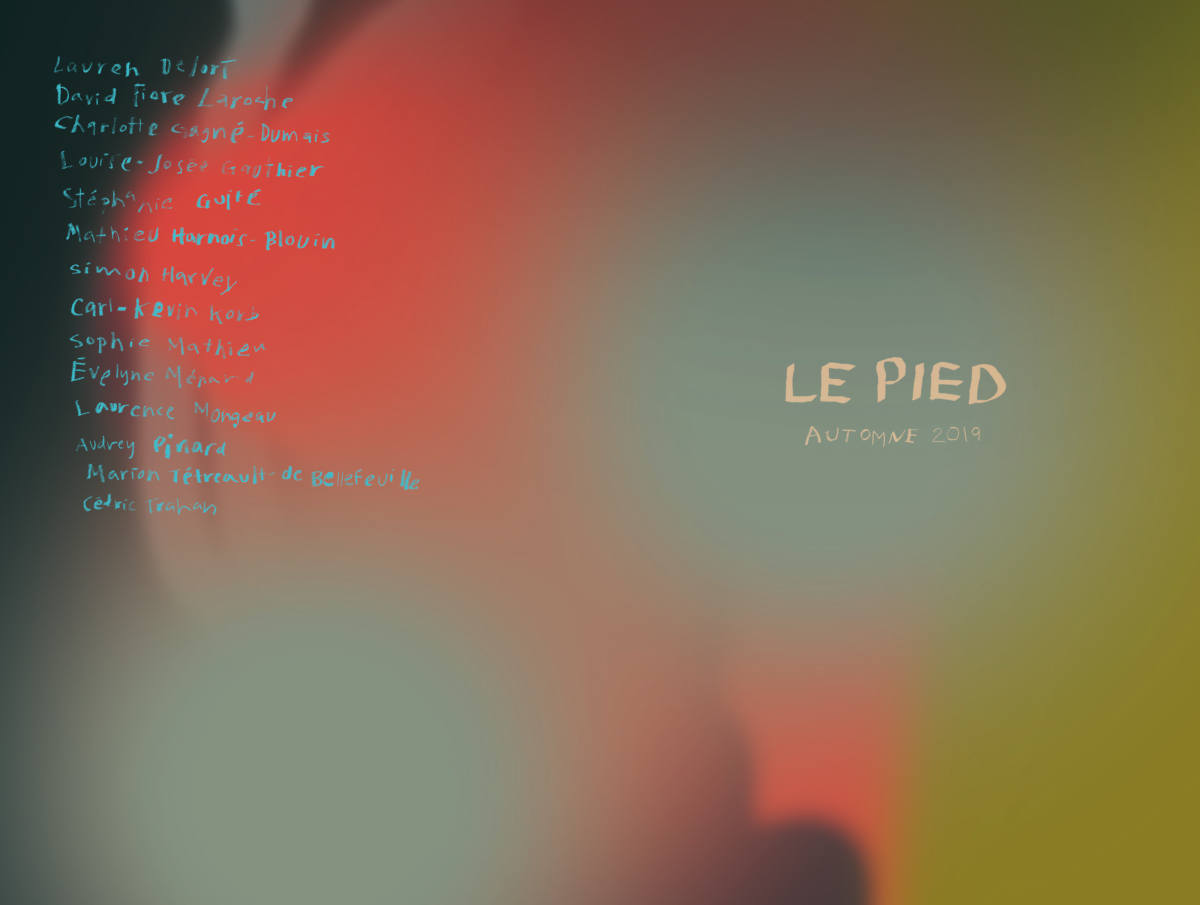 Lauren Delort
David Fiore Laroche
Charlotte Gagné-Dumais
Louise-Josée Gauthier
Stéphanie Guité
Mathieu Harnois-Blouin
Simon Harvey
Carl-Kevin Korb
Sophie Mathieu
Évelyne Ménard
Laurence Mongeau
Audrey Pinard
Marion Tétreault-de Bellefeuille
Cédric Trahan
LE PIED
AUTOMNE 2019